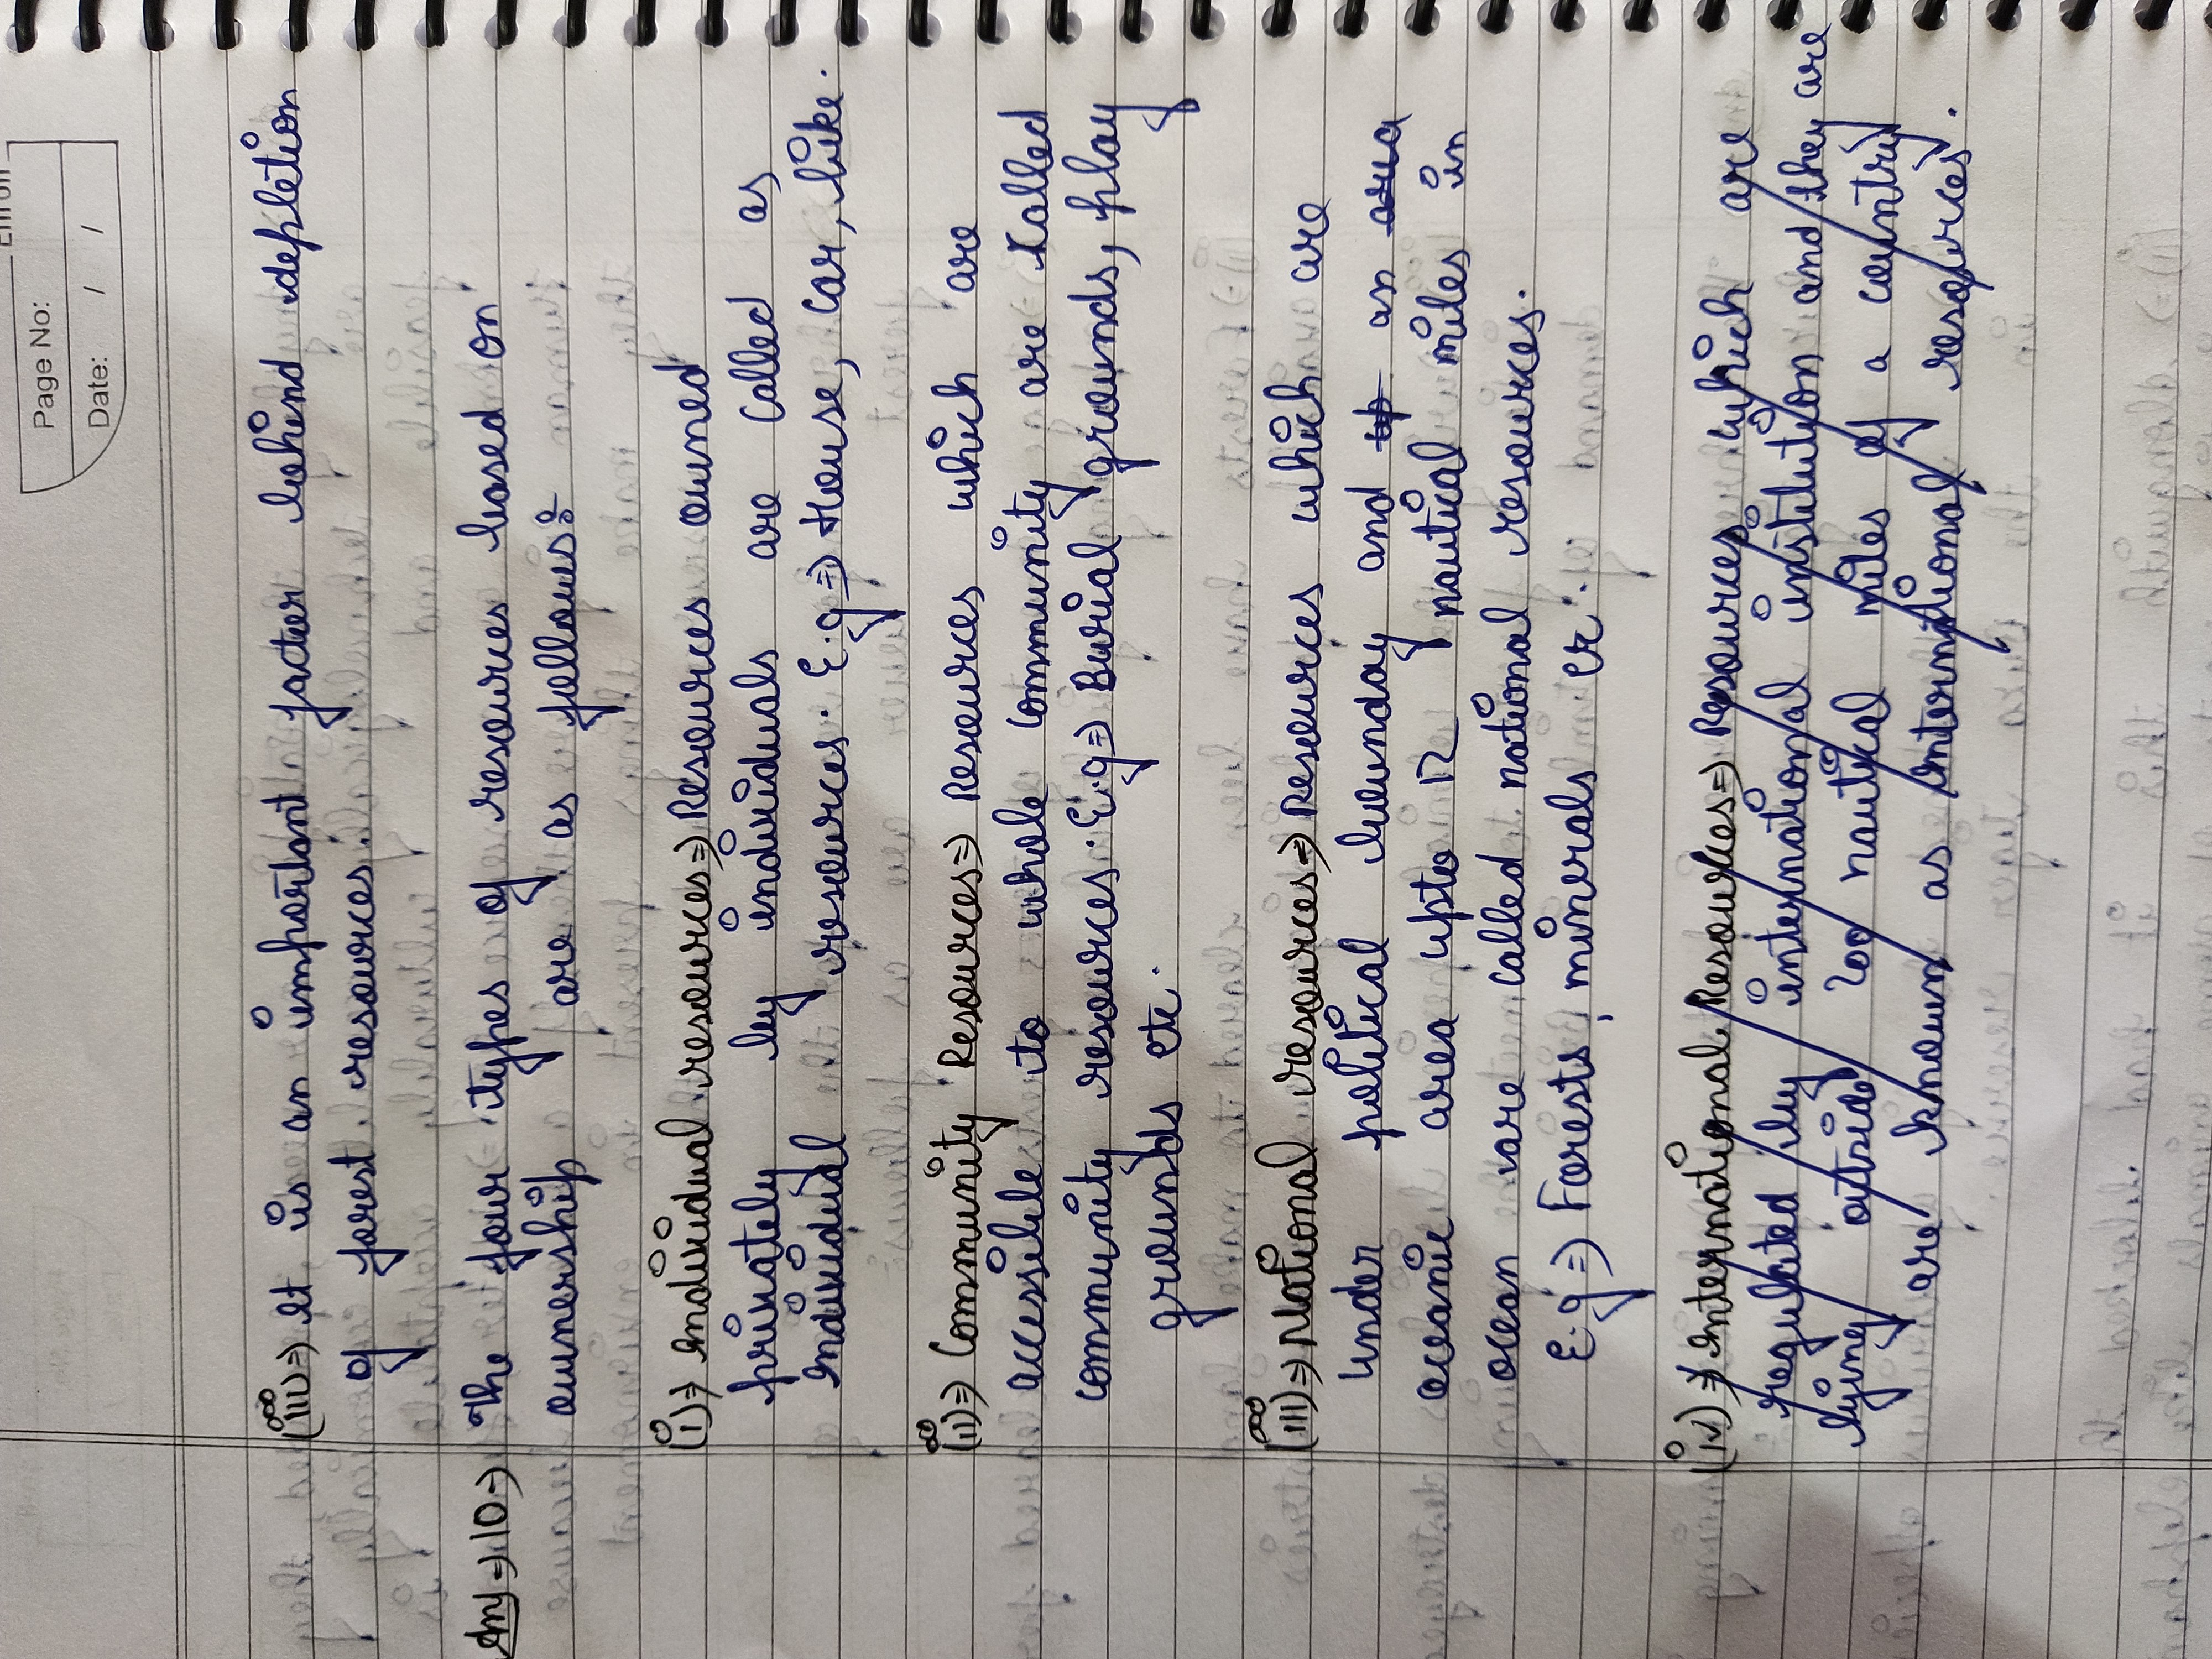 Enroll
Page No:
Date: / /
(iii)⇒ It is an important factor behind depletion
of forest resources.
Ans→10→ The four types of resources based on
ownership are as follows:
(i)⇒ Individual resources⇒ Resources owned
privately by individuals are called as
individual resources. E.g⇒ House, car, bike.
(ii)⇒ Community Resources⇒ Resources which are
accessible to whole community are called
community resources. E.g⇒ Burial grounds, play
grounds etc.
(iii)⇒ National resources⇒ Resources which are
under political bounday and up an area
oceanic area upto 12 nautical miles in
ocean are called national resources.
E.g⇒ Forests, minerals
(iv)⇒ International Resources⇒ Resources which are
regulated by international institution and they are
lying outside 200 nautical miles of a country
are known as international resources.